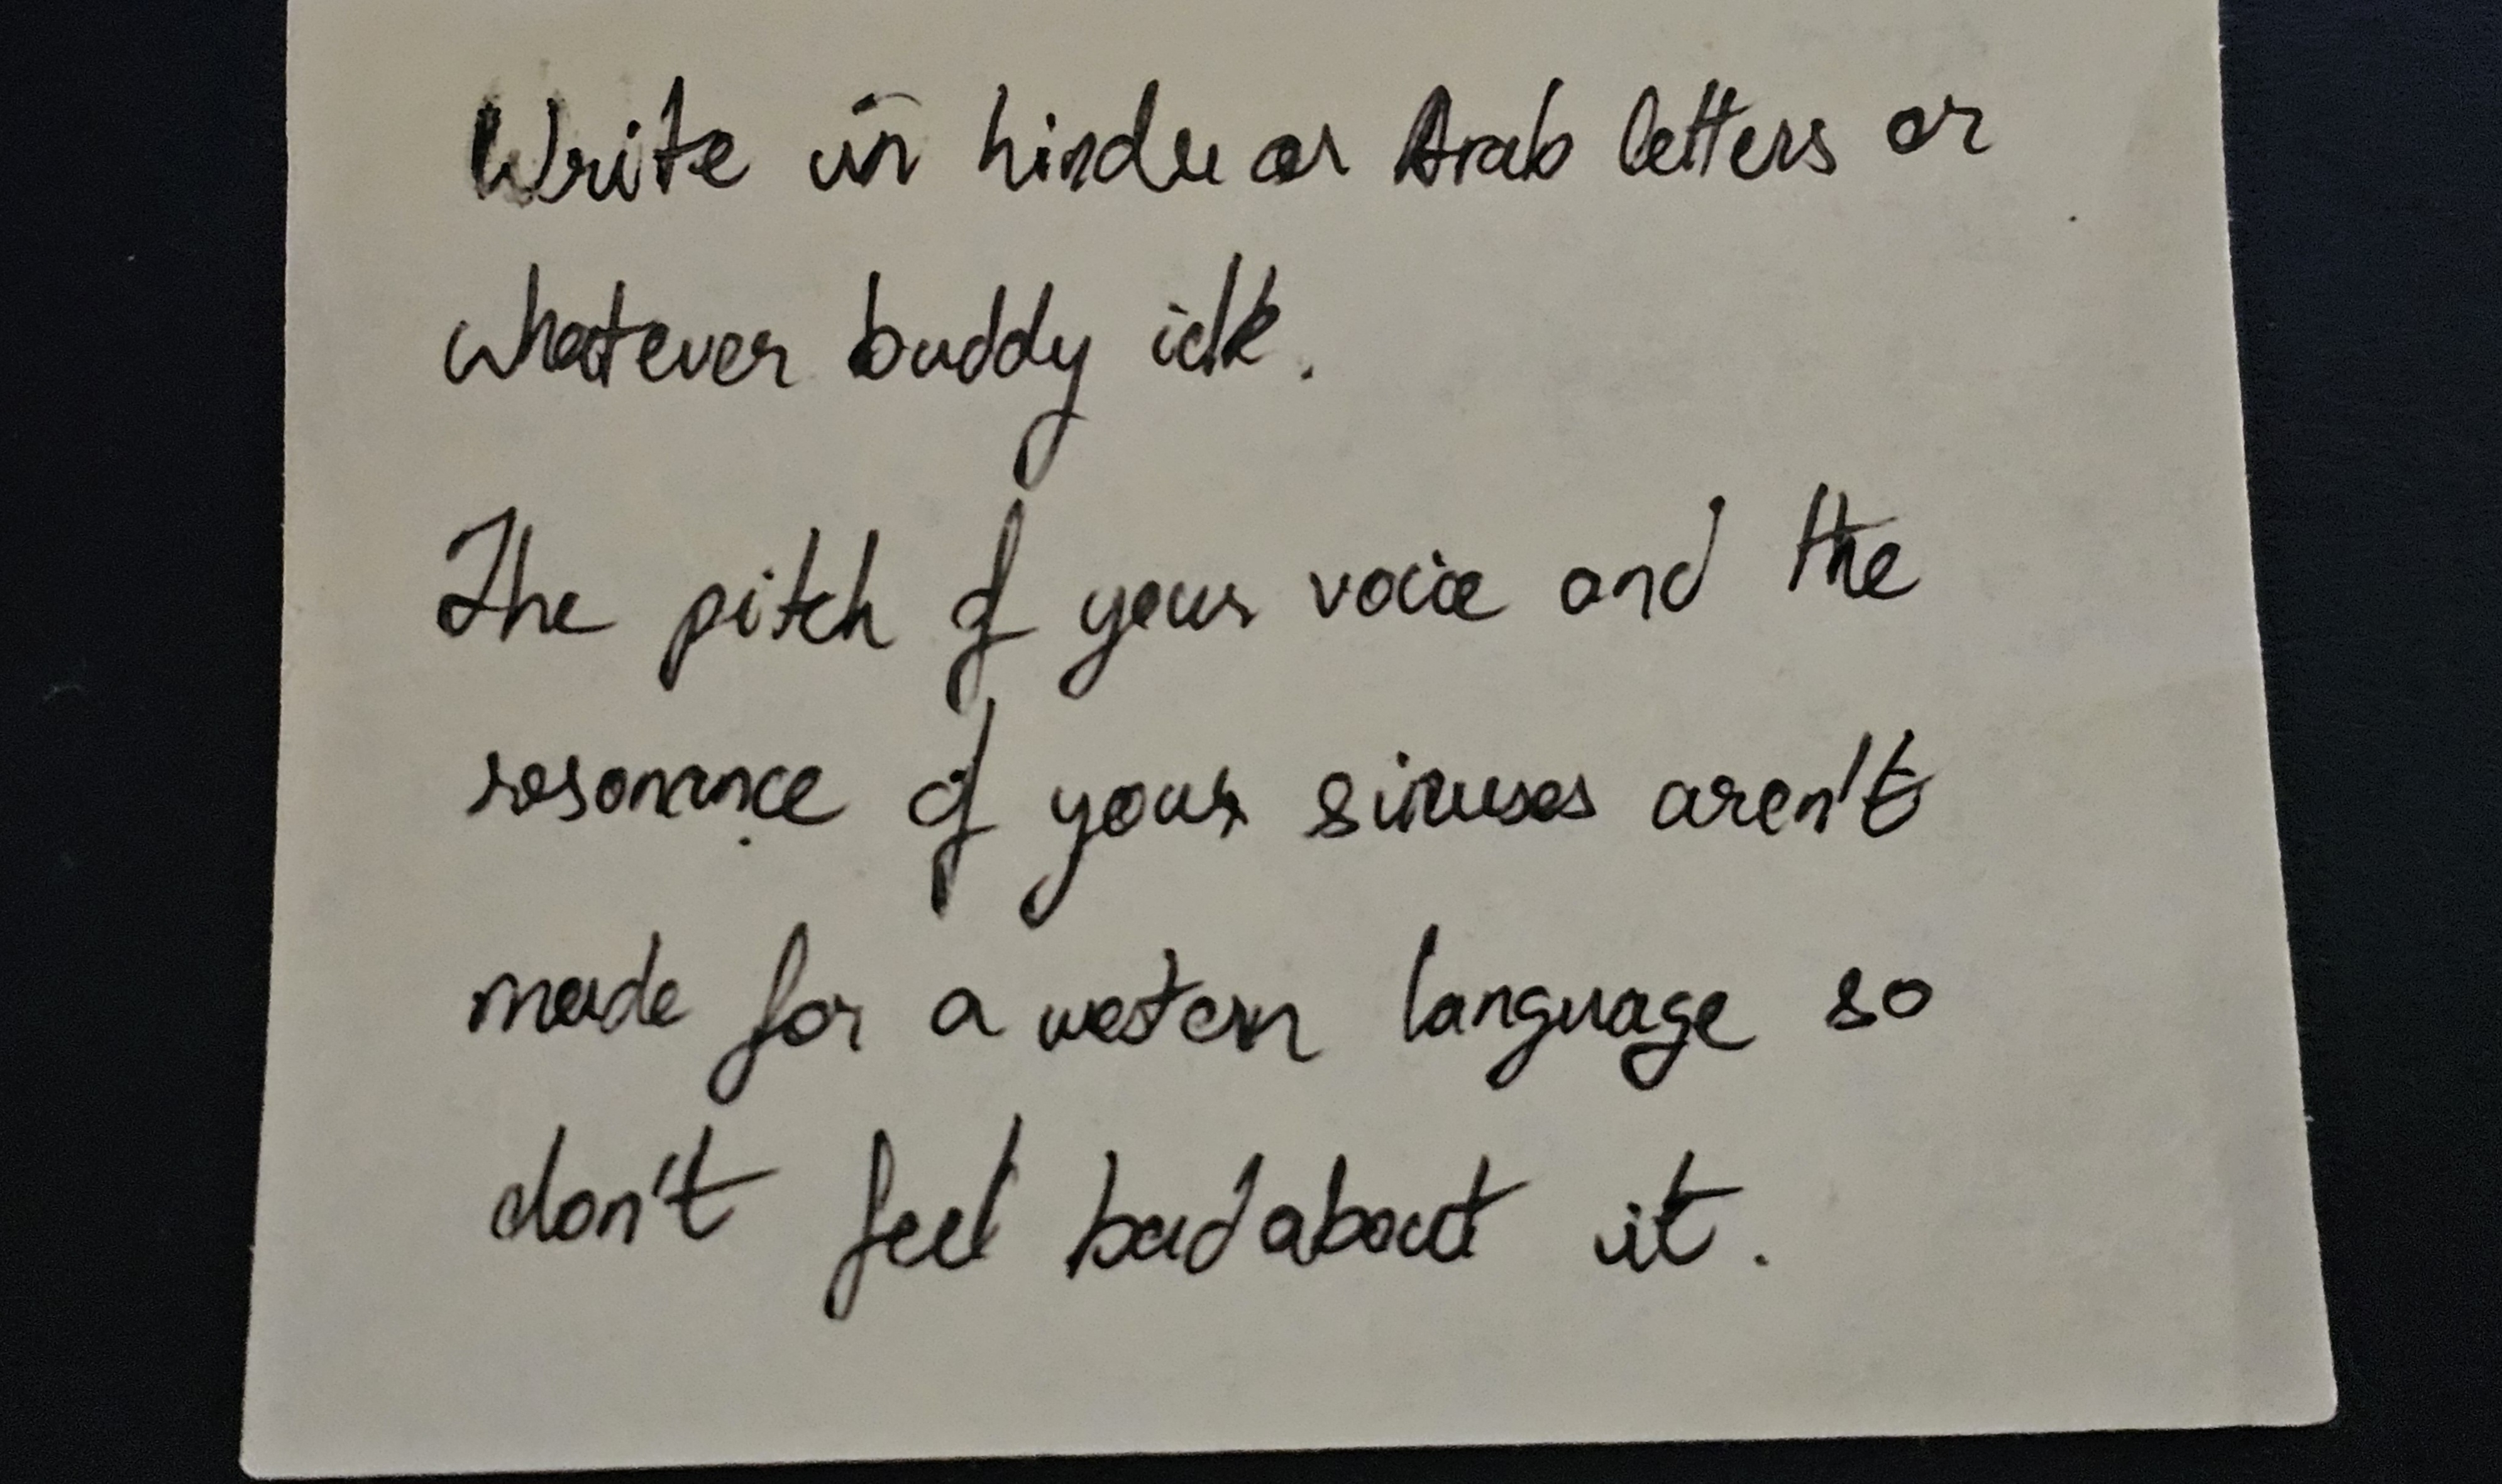 Write in hindu or Arab letters or
whatever buddy idk.
The pitch of your voice and the
resonance of your sinuses aren't
made for a western language so
don't feel bad about it.